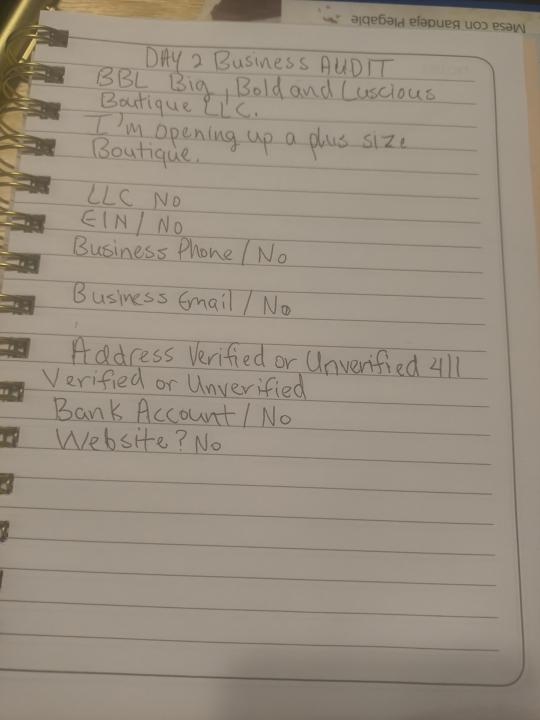 Mesa con Bandeja Plegable
DAY 2 Business AUDIT
BBL Big, Bold and Luscious
Boutique LLC.
I'm opening up a plus size
Boutique.
LLC No
EIN / No
Business Phone / No
Business Email / No
Address Verified or Unverified 411
Verified or Unverified
Bank Account / No
Website? No